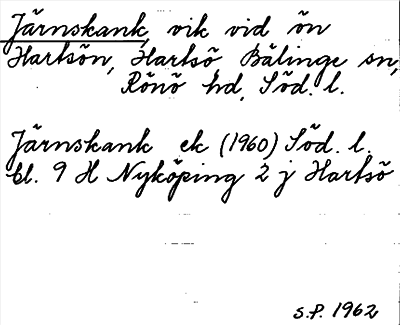 Järnskank, vik vid ön
Hartsön, Hartsö, Bälinge sn,
Rönö hd, Söd. l.
Järnskank ek (1960) Söd. l.
bl. 9 H Nyköping 2 j Hartsö
S.P. 1962